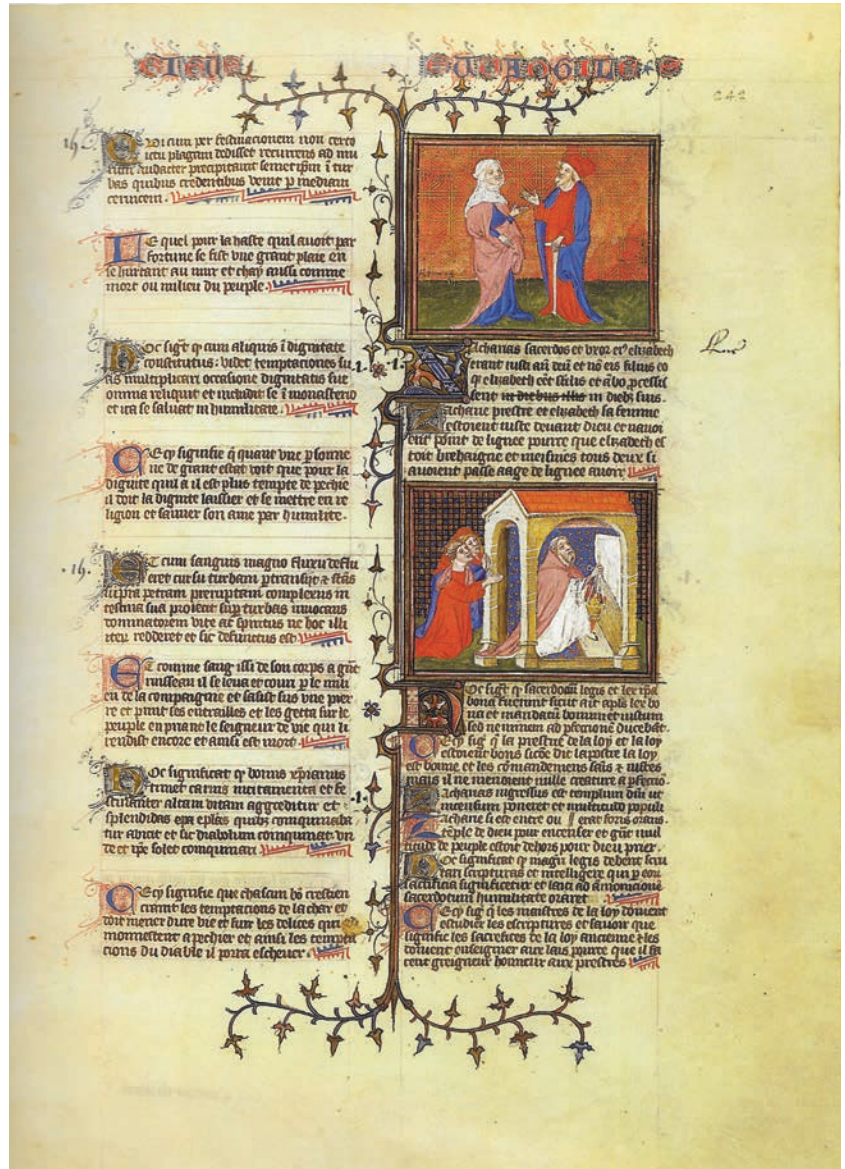 EUUANGILE
242
Qui cum per festinacionem non certo
ictu plagam dedisset recurrens ad mu
rum audacter precipitauit semetipm i tur
bas quibus credentibus venit p mediam
ceruicem.
Le quel pour la haste quil auoit par
fortune se fist vne grant plaie en
se hurtant au mur et chay aussi comme
mort ou milieu du peuple.
Hoc sigt q cum aliquis i dignitate
constitutus: videt temptaciones su
as multiplicari occasione dignitatis sue
omnia reliquit et includit se i monasterio
et ita se saluat in humilitate.
Cecy signifie q quant vne psonne
ne de grant estat voit que pour la
dignite quil a il est plus tempte de pechie
il doit la dignite laissier et se mettre en re
ligion et sauuer son ame par humilite.
Et cum sanguis magno fluxu deflu
eret cursu turbam ptransijt et stans
supra petram preruptam complexus in
testina sua proiecit sup turbas inuocans
dominatorem vite ac spiritus ut hoc illi
iteru redderet et sic defunctus est
Et comme sang issi de son corps a gnt
ruisseau il se leua et couri p le mili
en de la compaignie et sasist sus vne pier
re et print ses entrailles et les getta sur le
peuple en priant le seigneur de vie qui li
rendist encore et ainsi est mort.
Hoc significat q
timet carnis incitamenta et fe
stinanter altam vitam aggreditur et
splendidas epulas quibz
tur abicit et sic diabolum coinquinat vn
de et ipe solet coinquinari
Cecy signifie que chascun bo crestien
craint les temptacions de la char et
doit mener dure vie et fuir les delices qui
monnestent a pechier et ainsi les tempta
cions du diable il porra escheuer.
Zacharias sacerdos et vxor ei elizabeth
erant iusti an deu et no eis filius eo
q elizabeth eet stilis et abo pcessis
sent in diebus illis in diebz suis.
Zacharie prestre et elizabeth sa femme
estoient iuste deuant dieu et nauoi
ent point de lignee pource que elizabeth es
toit brehaigne et meismes tous deux si
auoient passe aage de lignee auoir
Hoc sigt q sacerdotiu legis et lex ipa
bona fuerunt sicut ait apls lex bo
na et mandatu bonum et iustum
sed neminem ad pfectione ducebat.
Cecy sig q la prestre de la loy et la loy
estoient bons sicoe dit lapostre la loy
est bonne et les comandemens sais et iustes
mais il ne menoient nulle creature a pfectio.
Zacharias ingressus est templum dni ut
incensum poneret et multitudo populi
Zacharie si est entre ou erat foris orans.
teple de dieu pour encenser et gnt mul
titude de peuple estoit dehors pour dieu prier.
Hoc significat q magri legis debent scru
tari scripturas et intelligere qui p eou
sacrificia significetur et laici ad amonicione
sacerdotum humilitate orare
Cecy sig q les maistres de la loy doiuent
estudier les escriptures et sauoir que
signifie les sacrefices de la loy ancienne et les
doiuent enseigner aux lais pource que il fa
cent greigneur honneur aux prestres